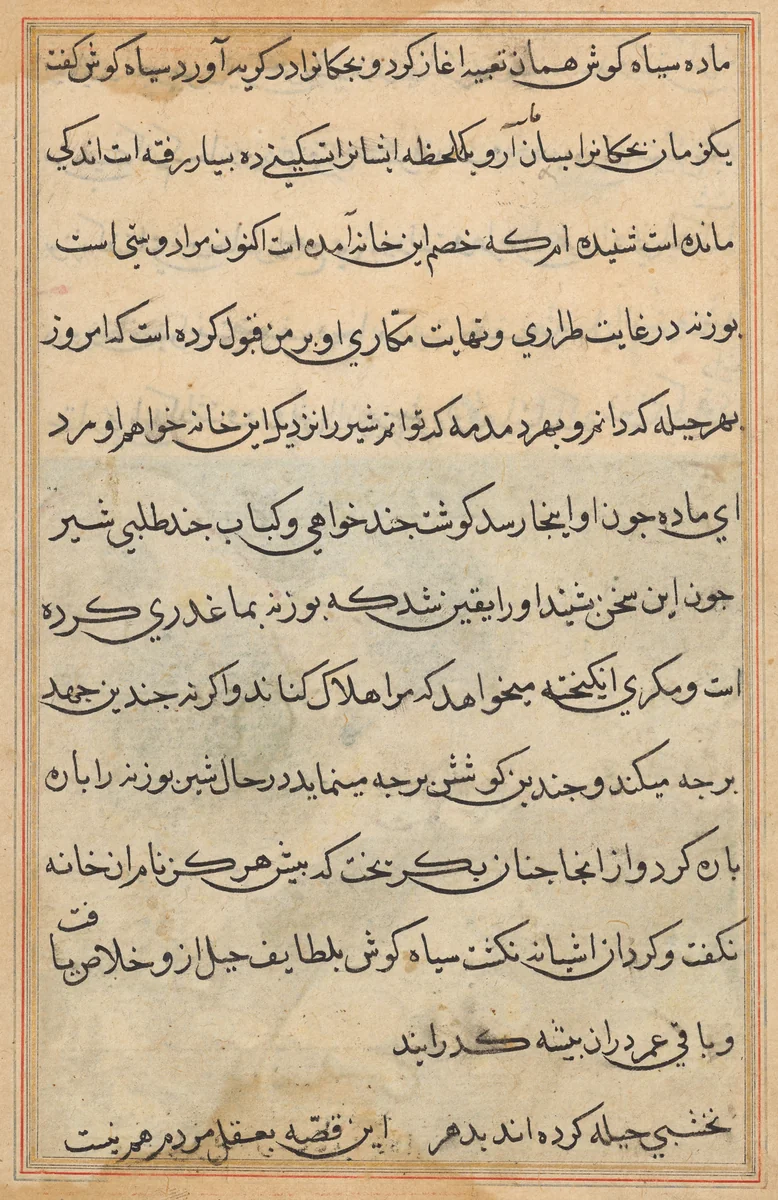 ماده سیاه کوش همان تعبیه اغاز کرد و بجکانرا در کریه آورد سیاه کوش کفت
یکزمان بجکانرا بسان آر و یکلحظه ایشانرا تسکینی ده بسیار رفته است اندکی
مانده است شنیده ام که خصم این خانه آمده است اکنون مرا دوستی است
بوزنه در غایت طراري و نهایت مکّاري او بر من قبول کرده است که امروز
بهر حیله که دانم و بهر دمدمه که توانم شیر را نزدیک این خانه خواهم اورد
اي ماده جون او اینجا رسد کوشت جند خواهي و کباب جند طلبي شیر
جون این سخن شنید اورا یقین شد که بوزنه بما غدري کرده
است و مکري انکیخته میخواهد که مرا هلاک کناند و اکرنه جندین جهد
برجه میکند و جندین کوشش برجه مینماید در حال شیر بوزنه را باره
باره کرد و از انجا جنان بکریخت که بیش هرکز نام ان خانه
نکفت و کرد ان اشیانه نکشت سیاه کوش بلطایف حیل ازو خلاص یافت
و باقي عمر دران بیشه کذرانید
نخشبي حیله کرده اند بدهر این قصّه بعقل مردم هم نیست